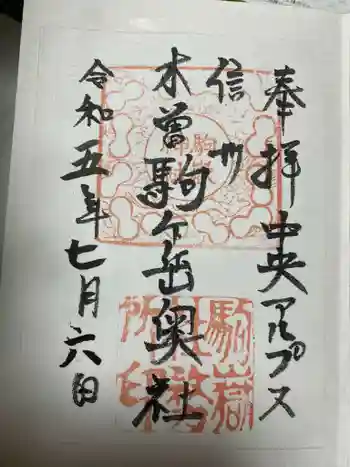 奉拝 中央アルプス
信州
木曽駒ヶ岳奥社
令和五年七月六日
駒嶽
社務
所印